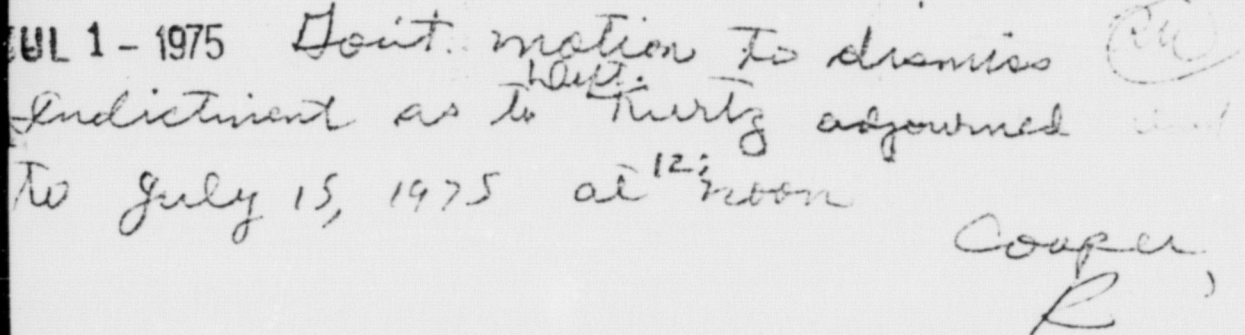 JUL 1 - 1975 Gov't. motion to dismiss
Indictment as to Deft. Kurtz adjourned
to July 15, 1975 at 12: noon
Cooper,
R